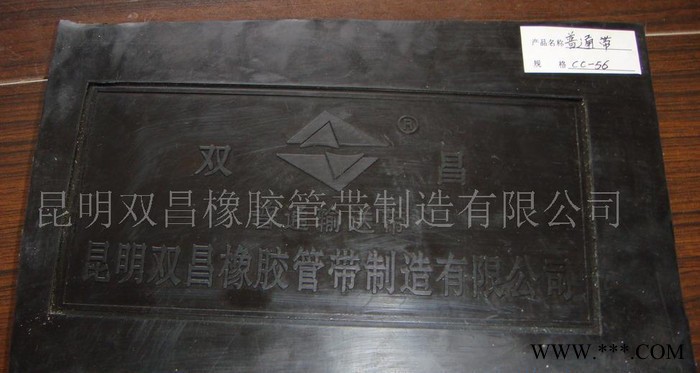 产品名称 普通带
规 格 CC-56
双 ® 昌
昆明双昌橡胶管带制造有限公司
普通输送带
昆明双昌橡胶管带制造有限公司
WWW.***.COM